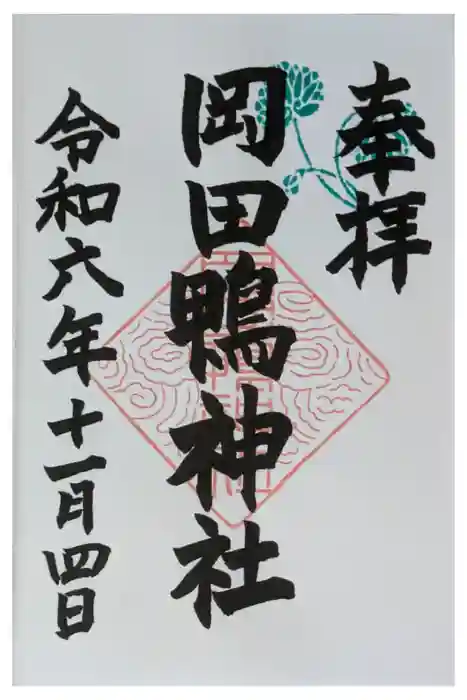 奉拝
岡田鴨神社
令和六年十一月四日